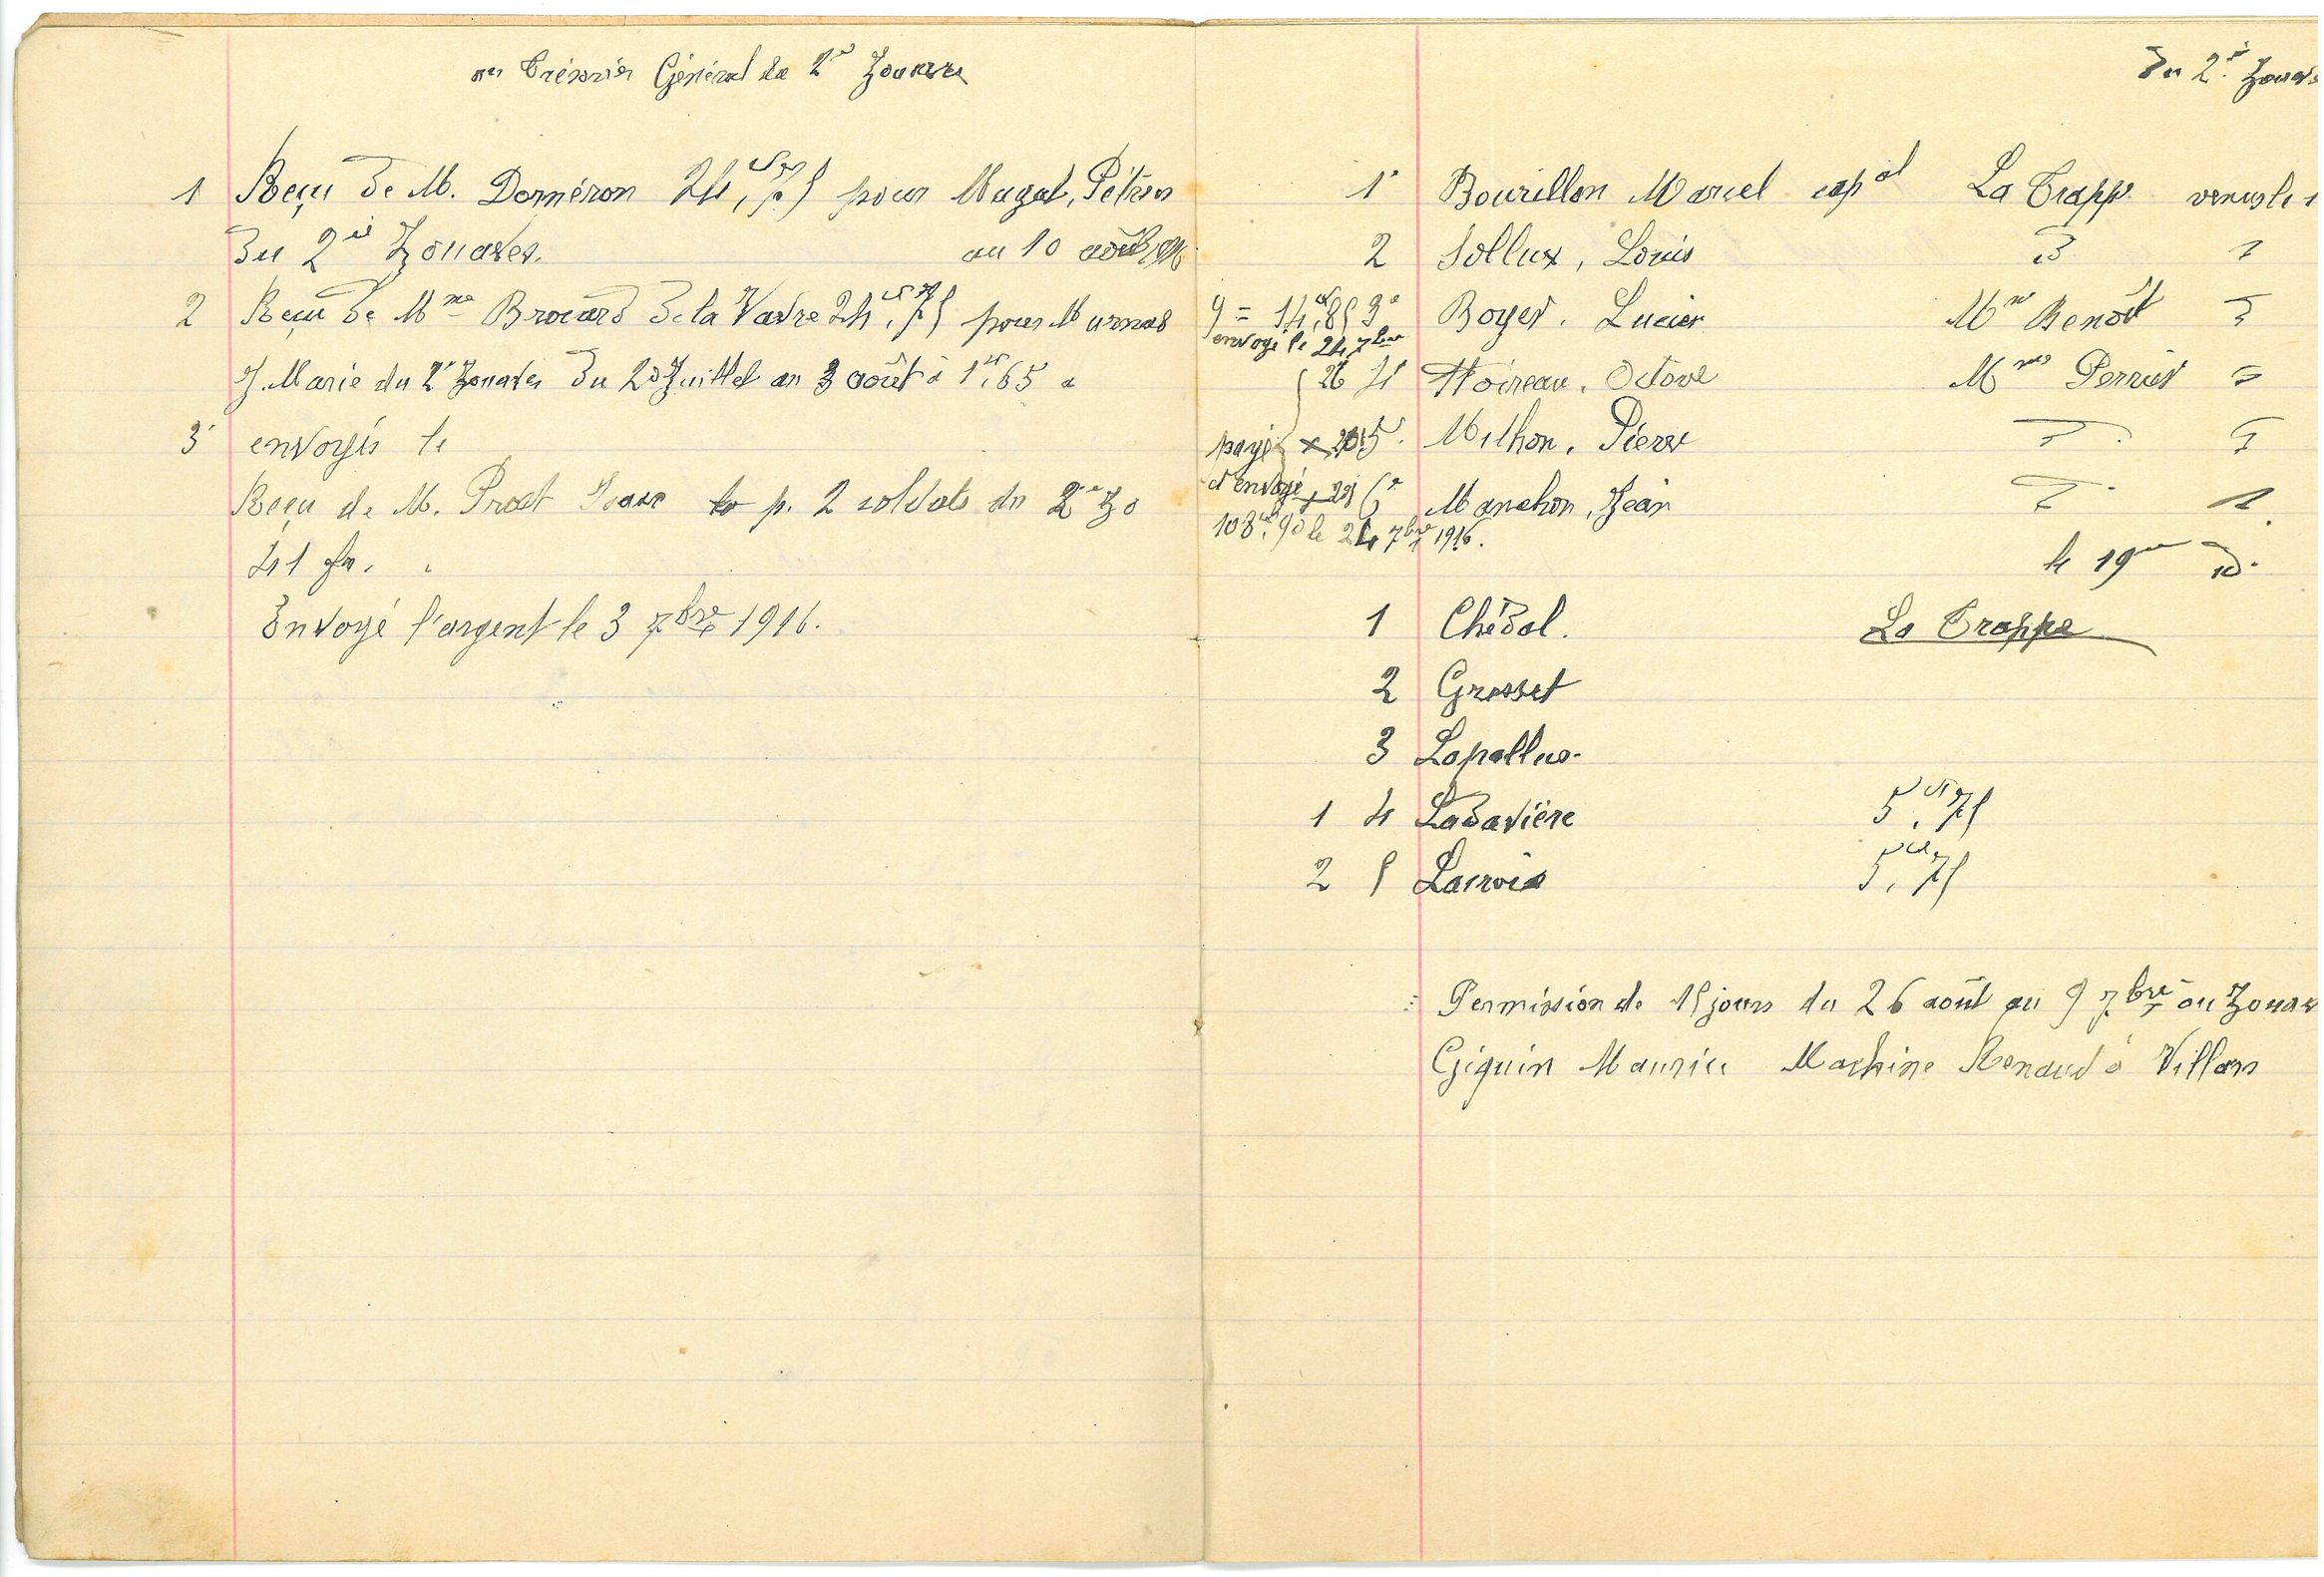 Trésorier Général du 2e Zouaves
1 Reçu de M. Dornéron 24,75 pour Magat, Pétrus
du 2e Zouaves. au 10 août
2 Reçu de Mme Brocard de la Vavre 24,75 pour
J. Marie du 2e Zouaves du 20 Juillet au 3 août à 1f,65
3 envoyés le
Reçu de M. Prost Isaac p. 2 soldats du 2e Zo
41 fr.
Envoyé l'argent le 3 7bre 1916.
du 2e Zouaves
1° Bourillon Marcel capal La Trappe venus le 1
2 Sollux, Louis
9 = 14,85 3° Boyer, Lucien Mr Benoît
envoyé le 24 7bre
26 4 Noireau, Octave Mme Perrier
payé 5 Milhon, Pierre
et envoyé 6° Manchon, Jean
103,90 le 24 7bre 1916.
le 19 d°
1 Chédal. La Trappe
2 Grosset
3 Lapallus
1 4 Ladavière 5,75
2 5 Lacroix 5,75
Permission de 15 jours du 26 août au 9 7bre au Zouav
Giquin Maurice Machine Renaud à Villars